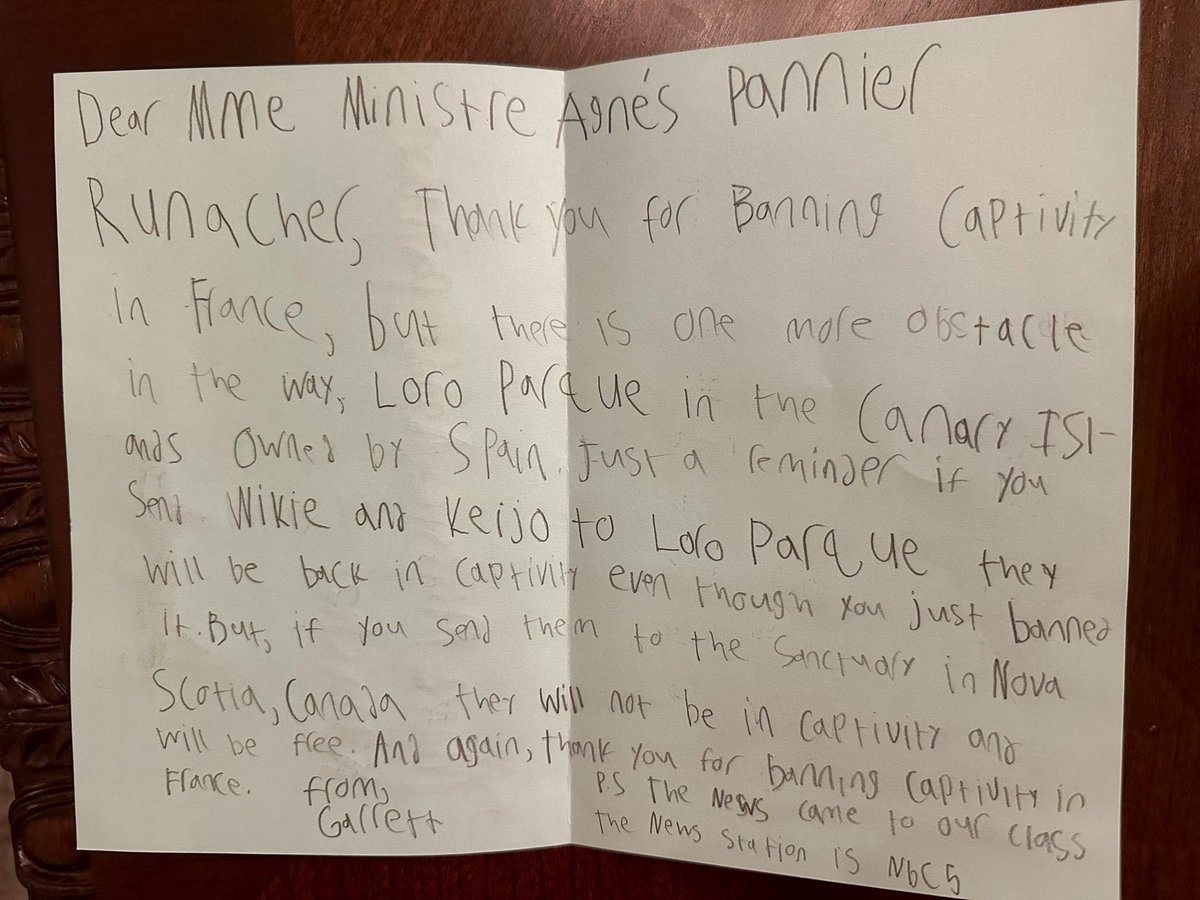 Dear Mme Ministre Agnés Pannier
Runacher, Thank you for Banning Captivity
in France, but there is one more obstacle
in the way, Loro Parque in the Canary Isl-
ands owned by Spain. Just a reminder if you
send Wikie and Keijo to Loro Parque they
will be back in captivity even though you just banned
it. But, if you send them to the sanctuary in Nova
Scotia, Canada they will not be in captivity and
will be free. And again, thank you for banning captivity in
France. from,
Garrett
P.S The News came to our class
the News station is NbC5